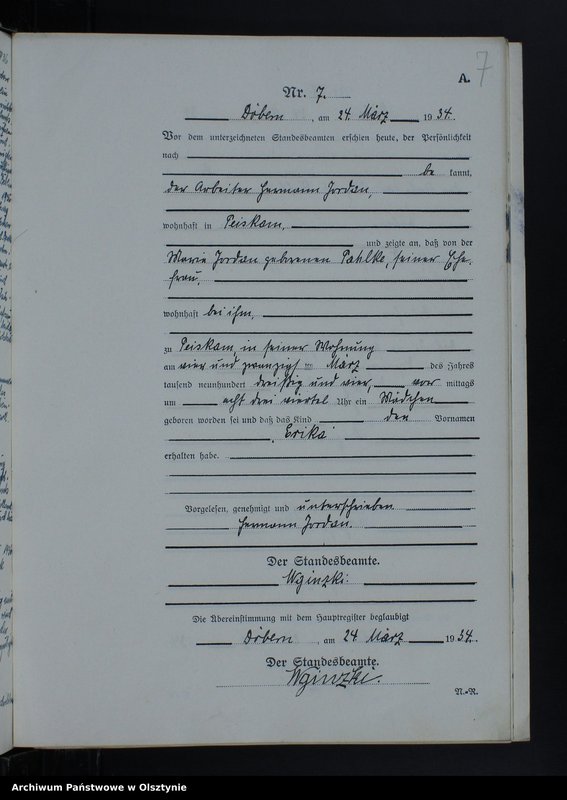 7
A.
Nr. 7.
Döbern, am 24 März 1934.
Vor dem unterzeichneten Standesbeamten erschien heute, der Persönlichkeit
nach
be kannt,
der Arbeiter Hermann Jordan,
wohnhaft in Peiskam,
und zeigte an, daß von der
Marie Jordan geborenen Pahlke, seiner Ehe-
frau,
wohnhaft bei ihm,
zu Peiskam in seiner Wohnung
am vier und zwanzigst en März des Jahres
tausend neunhundert dreißig und vier, vor mittags
um acht drei viertel Uhr ein Mädchen
geboren worden sei und daß das Kind den Vornamen
Erika
erhalten habe.
Vorgelesen, genehmigt und unterschrieben
Hermann Jordan.
Der Standesbeamte.
Wginzki.
Die Übereinstimmung mit dem Hauptregister beglaubigt
Döbern, am 24 März 1934.
Der Standesbeamte.
Wginzki.
N.-R.
Archiwum Państwowe w Olsztynie